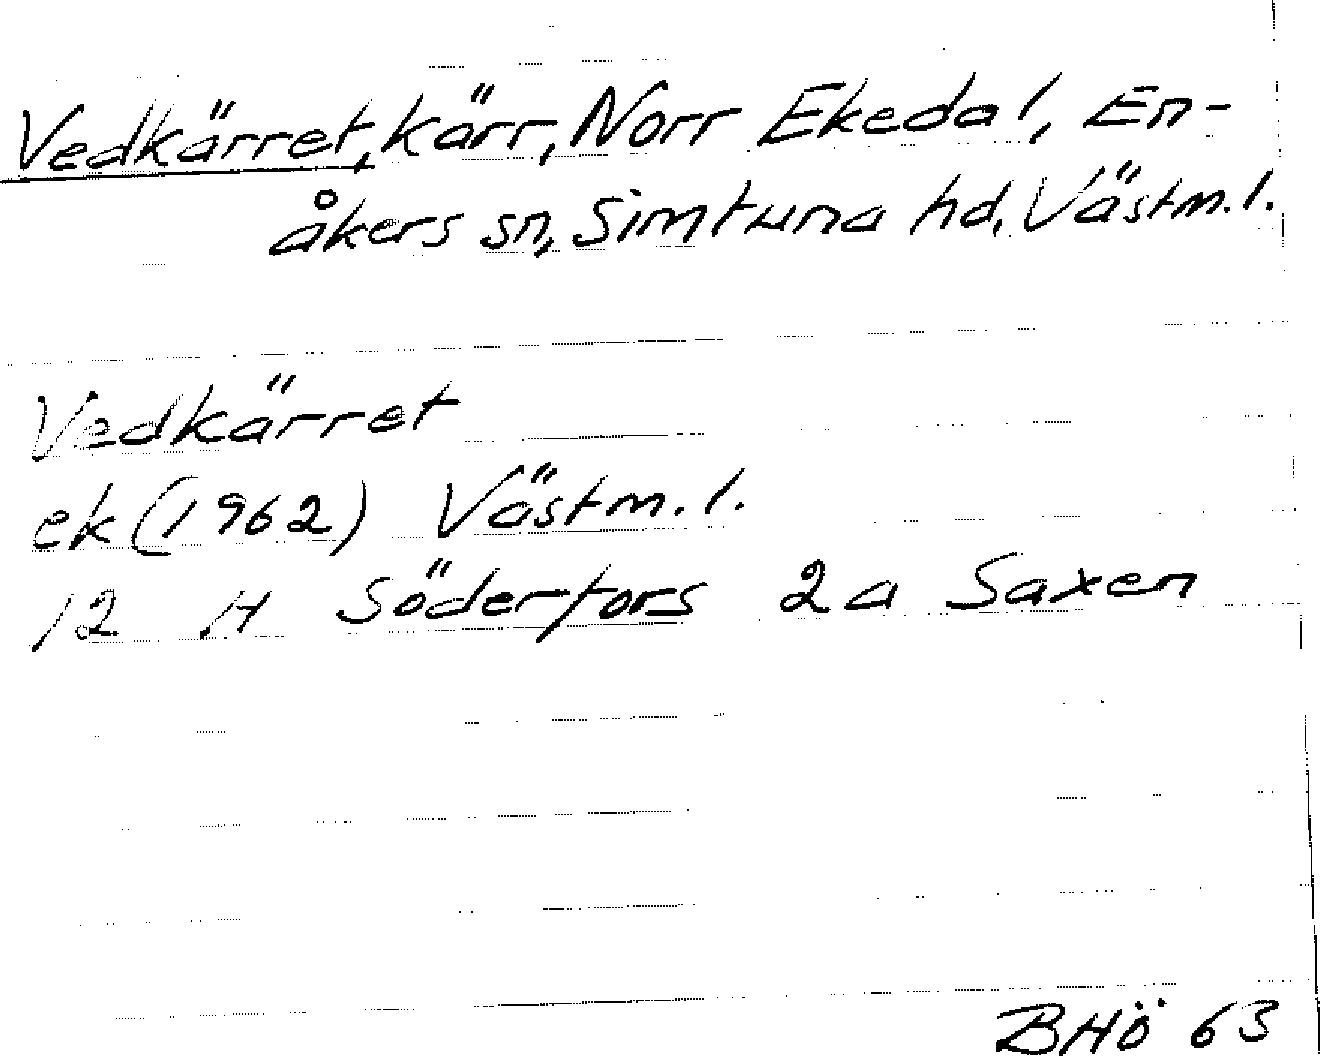 Vedkärret, kärr, Norr Ekedal, En-
åkers sn, Simtuna hd, Västm.l.
Vedkärret
ek (1962) Västm.l.
12 H Söderfors 2a Saxen
BHÖ 63